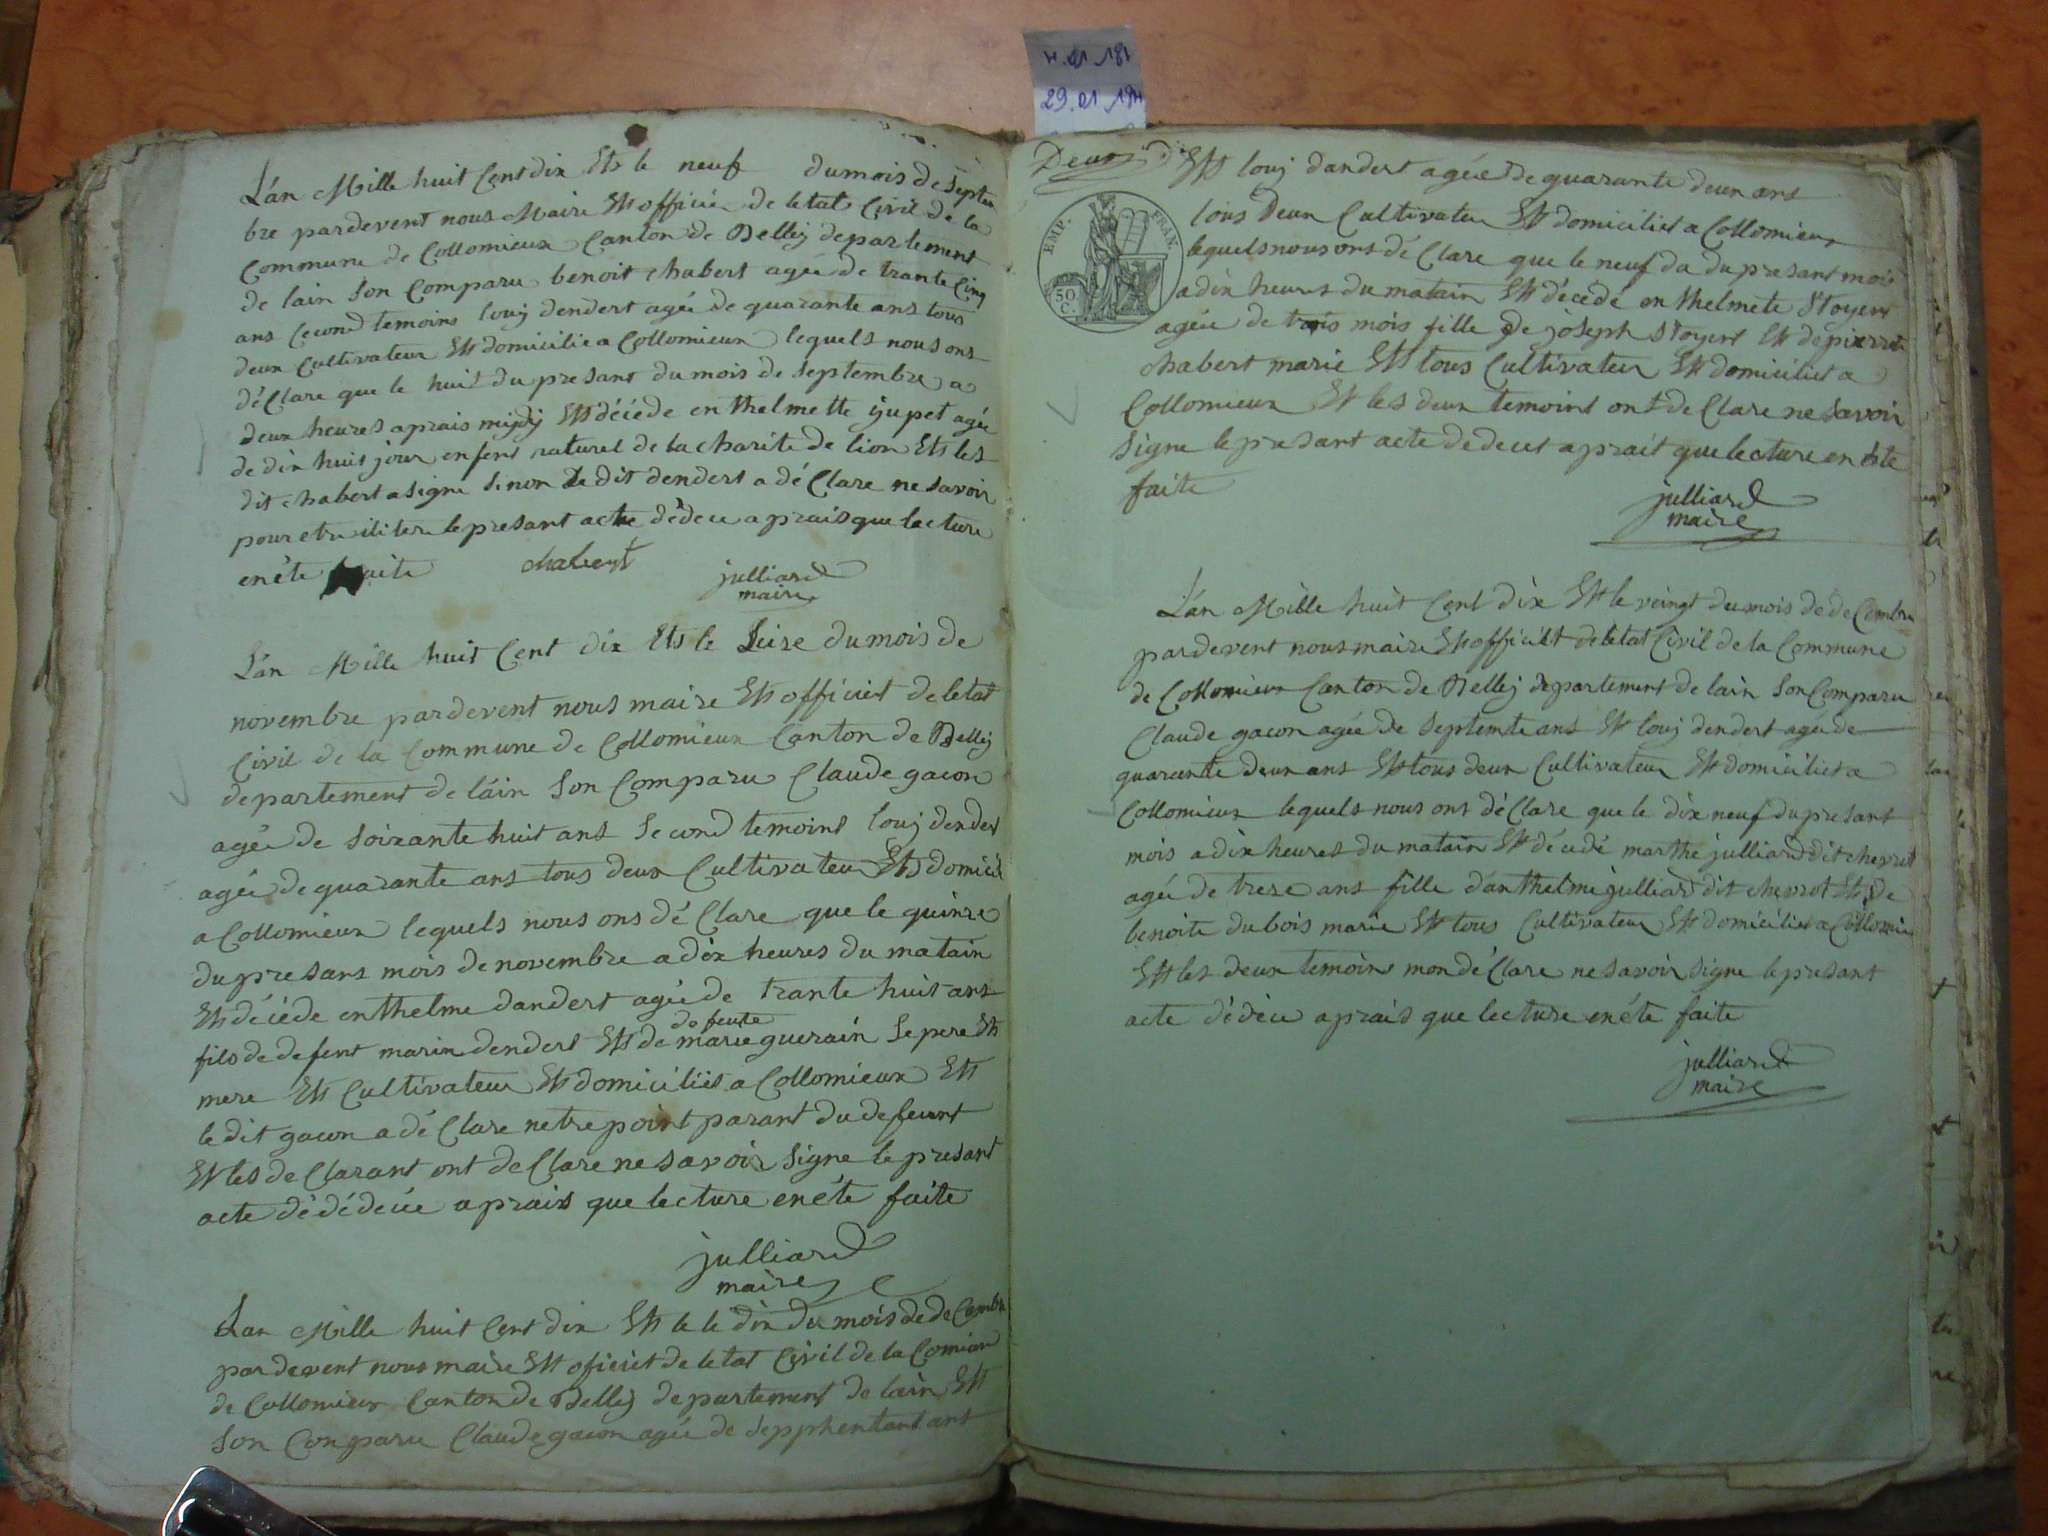 L'an Mille huit Cent dix Ets le neuf dumois de septem
bre pardevent nous Maire Ett officié de letat Civil de la
Commune de Collomieux Canton de Belley departement
de lain Son Comparu benoit chabert agée de trante Cinq
ans Second temoins louj dendert agée de quarante ans tous
deux Cultivateur Ett domicilié a Collomieux lequels nous ons
dé Clare que le huit du presant du mois de Septembre a
deux heures aprais mijdy Ett décéde enthelmette yupet agée
de dix huit jour enfent naturel de la charite de lion Ets les
dit chabert a signe Sinon Le dit dendert a dé Clare ne savoir
le presant acte dédece aprais que lacture
en éte faite chabert julliard
maire
L'an Mille huit Cent dix Ets le Seize dumois de
novembre pardevent nous maire Ett officiet de letat
Civil de la Commune de Collomieux Canton de Belley
departement de láin Son Comparu Claude gacon
agée de soixante huit ans Second temoins louj dendert
agée de quarante ans tous deux Cultivateur Ett domicil
a Collomieux lequels nous ons dé Clare que le quinze
du presans mois de novembre a dix heures du matain
Ett décéde enthelme dandert agée de trante huit ans
defeute
fils de defent marin dendert Ett de marie guerain Se pere Ett
mere Ett Cultivateur Ett domiciliés a Collomieux Ett
le dit gacon a dé Clare netre point parant du defeunt
Ett les de Clarant ont de Clare ne savoir Signe le presant
acte dé dédecée aprais que lecture en éte faite
julliard
maire
Lan Mille huit Cent dix Ett le le dix du mois de deCembre
pardevent nous maire Ett oficiét de letat Civil de la Comiun
de Collomieux Canton de Belley departement de lain Ett
Son Conparu Claude gacon agée de Sepphentant ans
29.01
EMP. FRAN.
50
C.
Deux
Ett louj dandert agée de quarante deux ans
tous Deux Cultivateur Ett domiciliet a Collomieux
lequels nous ons dé Clare que le neuf da du presant mois
a dix heures du matain Ett décedé enthelmete Stoyert
agée de trois mois fille de joseph Stoyert Ett de pierrete
chabert marie Ett tous Cultivateur Ett domiciliet a
Collomieux Ett les deux temoins ont de Clare ne savoir
Signe le presant acte de decet aprait que lecture en éte
faite
julliard
maire
L'an Mille huit Cent dix Ett le veingt du mois de deCembre
pardevent nous maire Ett officiét de letat Civil de la Commune
de Collomieux Canton de Belley departement de lain Son Comparu
Claude gacon agée de Septemte ans Ett louj dendert agée de
quarante deux ans Ett tous deux Cultivateur Ett domiciliet a
Collomieux lequels nous ons dé Clare que le dix neuf du presant
mois a dix heures du matain Ett décedé marthe julliard dit chevrot
agée de treze ans fille d'anthelme julliard dit chevrot Ett de
benoite dubois marie Ett tous Cultivateur Ett domiciliet a Collomie
Ett les deux temoins mon dé Clare ne savoir signe le presant
acte dédéce aprais que lecture en éte faite
julliard
maire